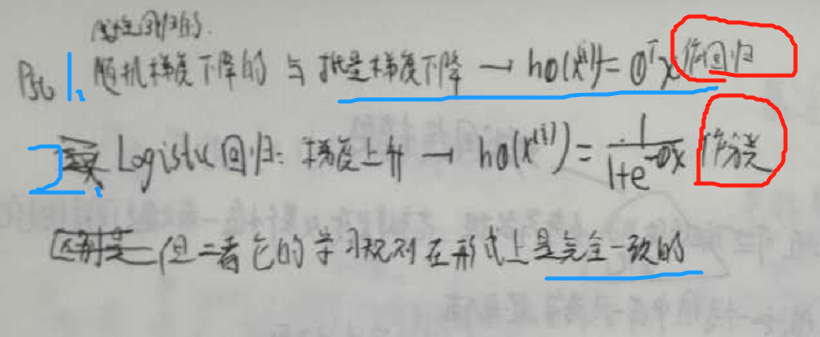 线性回归的.
Ps: 1. 随机梯度下降的 与 批量梯度下降 → hθ(x⁽ⁱ⁾)= θᵀx 作回归
2. Logistic回归: 梯度上升 → hθ(x⁽ⁱ⁾)= 1/(1+e^-θx) 作分类
区别是 但二者它的学习规则在形式上是完全一致的